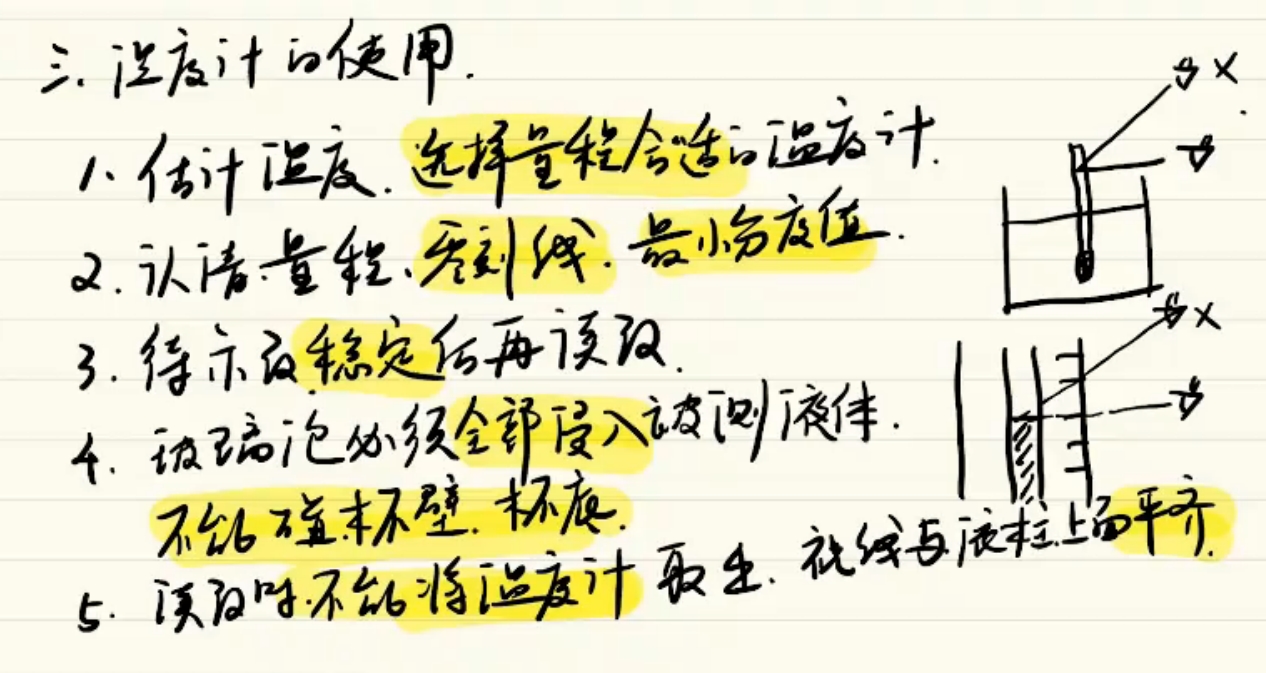 三. 温度计的使用.
1. 估计温度. 选择量程合适的温度计.
2. 认清:量程、零刻线. 最小分度值.
3. 待示数稳定后再读数.
4. 玻璃泡必须全部浸入被测液体.
不能碰杯壁. 杯底.
5. 读数时.不能将温度计取出. 视线与液柱上面平齐.